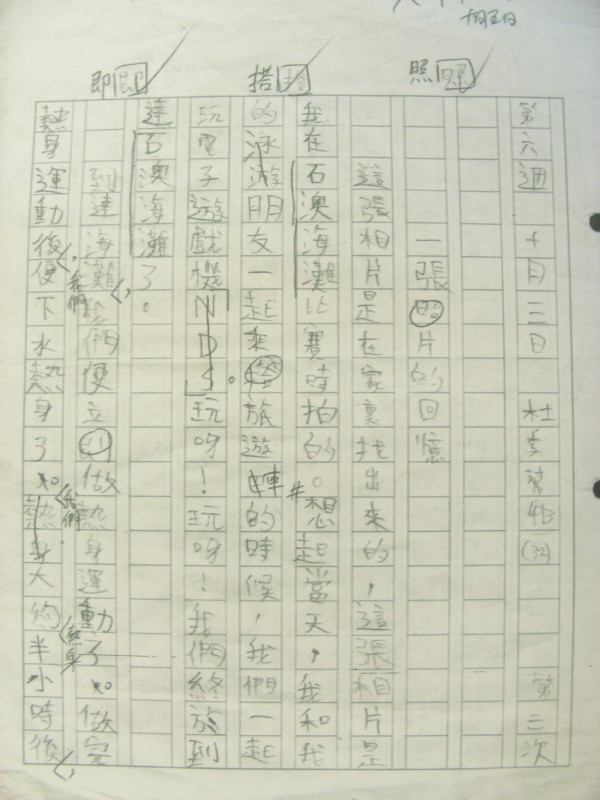 十月五日
照照
搭搭
即即
第六週 十月三日 杜 (32) 第三次
一張照片的回憶
這張相片是在家裏找出來的，這張相片是
我在石澳海灘比賽時拍的。#想起當天，我和我
的泳游朋友一起乘搭旅遊車的時候，我們一起
玩電子遊戲機NDS。玩呀！玩呀！我們終於到
達石澳海灘了。
到達海灘，我們便立即做熱身運動了。做完
熱身運動後，我們便下水熱身了。我們熱身大約半小時後，